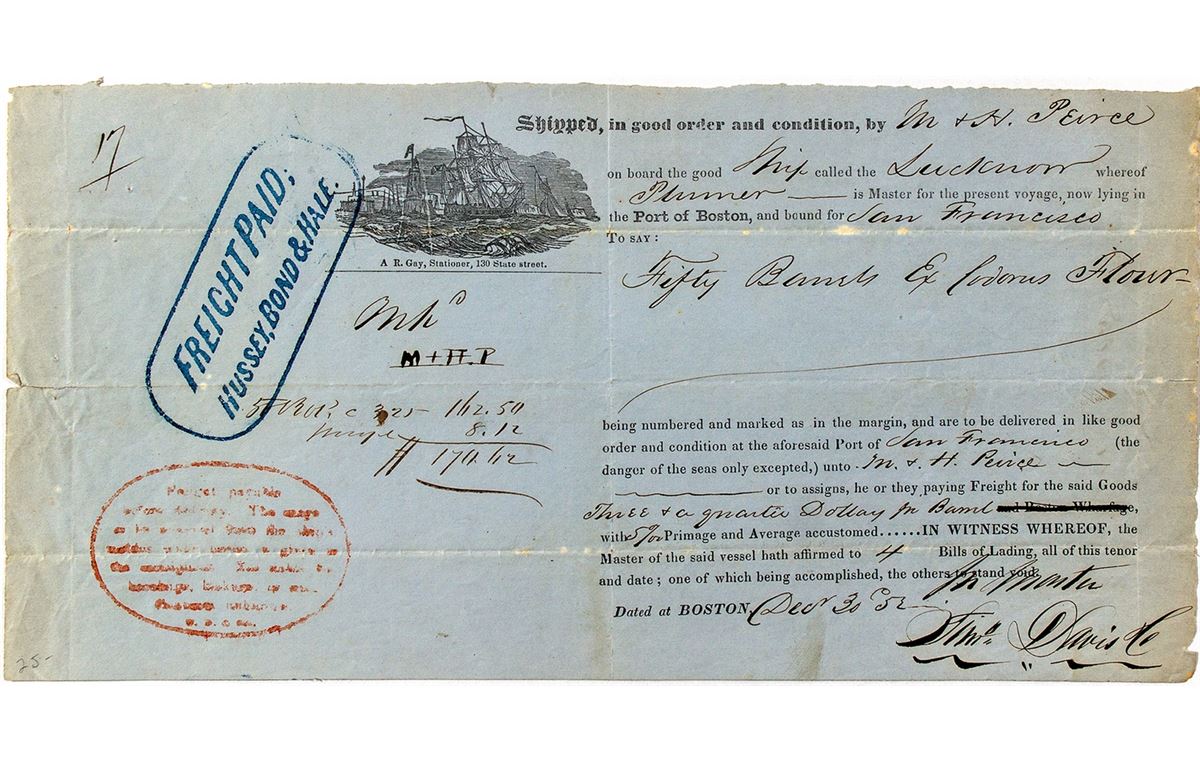 17
Shipped, in good order and condition, by M & H. Peirce
on board the good Ship called the Lucknow whereof
Plumer is Master for the present voyage, now lying in
the Port of Boston, and bound for San Francisco.
To say:
A R. Gay, Stationer, 130 State street.
FREIGHT PAID;
HUSSEY, BOND & HALE.
Fifty Barrels Ex Codorus Flour
Mkd
M+H.P
50 3.25 162.50
8.12
$ 170.62
being numbered and marked as in the margin, and are to be delivered in like good
order and condition at the aforesaid Port of San Francisco (the
danger of the seas only excepted,) unto M. & H. Peirce
or to assigns, he or they paying Freight for the said Goods
Three & a quarter Dollars pr Barrel and Boston Wharfage,
with 5 pr Primage and Average accustomed......IN WITNESS WHEREOF, the
Master of the said vessel hath affirmed to 4 Bills of Lading, all of this tenor
and date; one of which being accomplished, the others to stand void.
for Master
Dated at BOSTON, Decr 30 52
Davis Co
payable
before The
25-